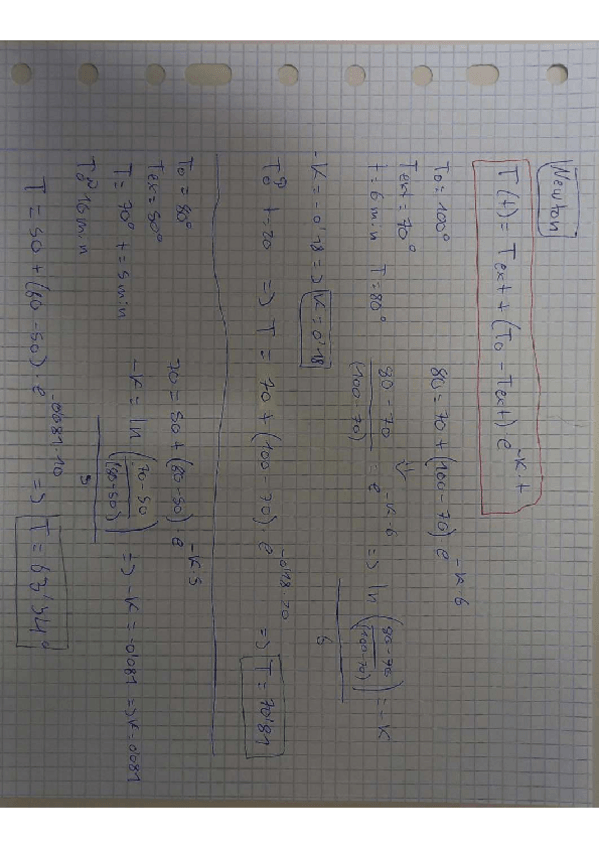 Newton
T(t) = Text + (To - Text) e^-k·t
To = 100°
Text = 70°
t = 6 min T = 80°
80 = 70 + (100 - 70) e^-k·6
80 - 70 / (100 - 70) = e^-k·6 => ln (80 - 70 / (100 - 70)) / 6 = -k
-k = -0'18 => k = 0'18
t=20 => T = 70 + (100 - 70) e^-0'18·20 => T = 70'81
To = 80°
Text = 50°
T = 70° t = 5 min
70 = 50 + (80 - 50) · e^-k·5
-k = ln (70 - 50 / (80 - 50)) / 5 => -k = -0'081 => k = 0'081
T = 50 + (80 - 50) · e^-0'081·10 => T = 63'34°